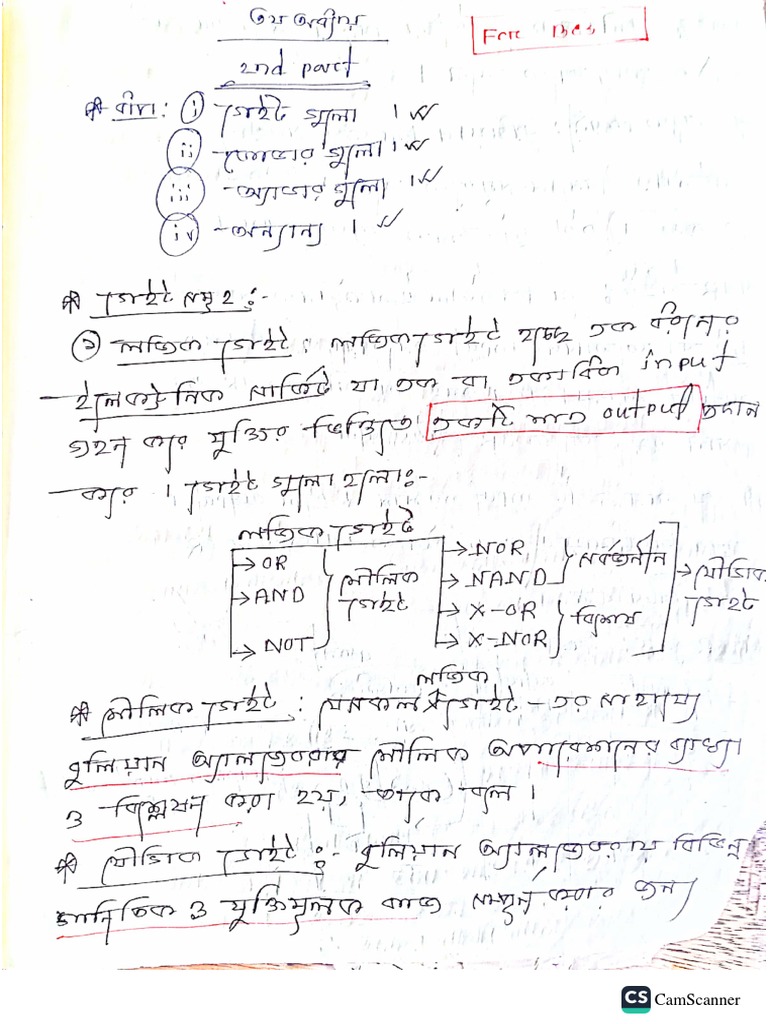 ৩য় অধ্যায়
For BCS
2nd part
* ধাপ: i গেইট গুলো ।
ii কোডার গুলো ।
iii অ্যাডার গুলো ।
iv অন্যান্য ।
* গেইট সমূহ :-
১ লজিক গেইট : লজিক গেইট হচ্ছে এক ধরনের
ইলেকট্রনিক সার্কিট যা এক বা একাধিক input
গ্রহন করে যুক্তির ভিত্তিতে একটি মাত্র output প্রদান
করে । গেইট গুলো হলোঃ-
লজিক গেইট
→ OR
→ AND
→ NOT
মৌলিক গেইট
→ NOR
→ NAND
সার্বজনীন
→ X-OR
→ X-NOR
বিশেষ
→ যৌগিক গেইট
লজিক
* মৌলিক গেইট : যেসকল গেইট - এর সাহায্যে
বুলিয়ান অ্যালজেবরার মৌলিক অপারেশনের ব্যাখ্যা
ও বিশ্লেষন করা হয়, তাকে বলে ।
* যৌগিক গেইট :- বুলিয়ান অ্যালজেবরায় বিভিন্ন
গানিতিক ও যুক্তিমূলক কাজ সম্পূর্ন করার জন্য
CS CamScanner